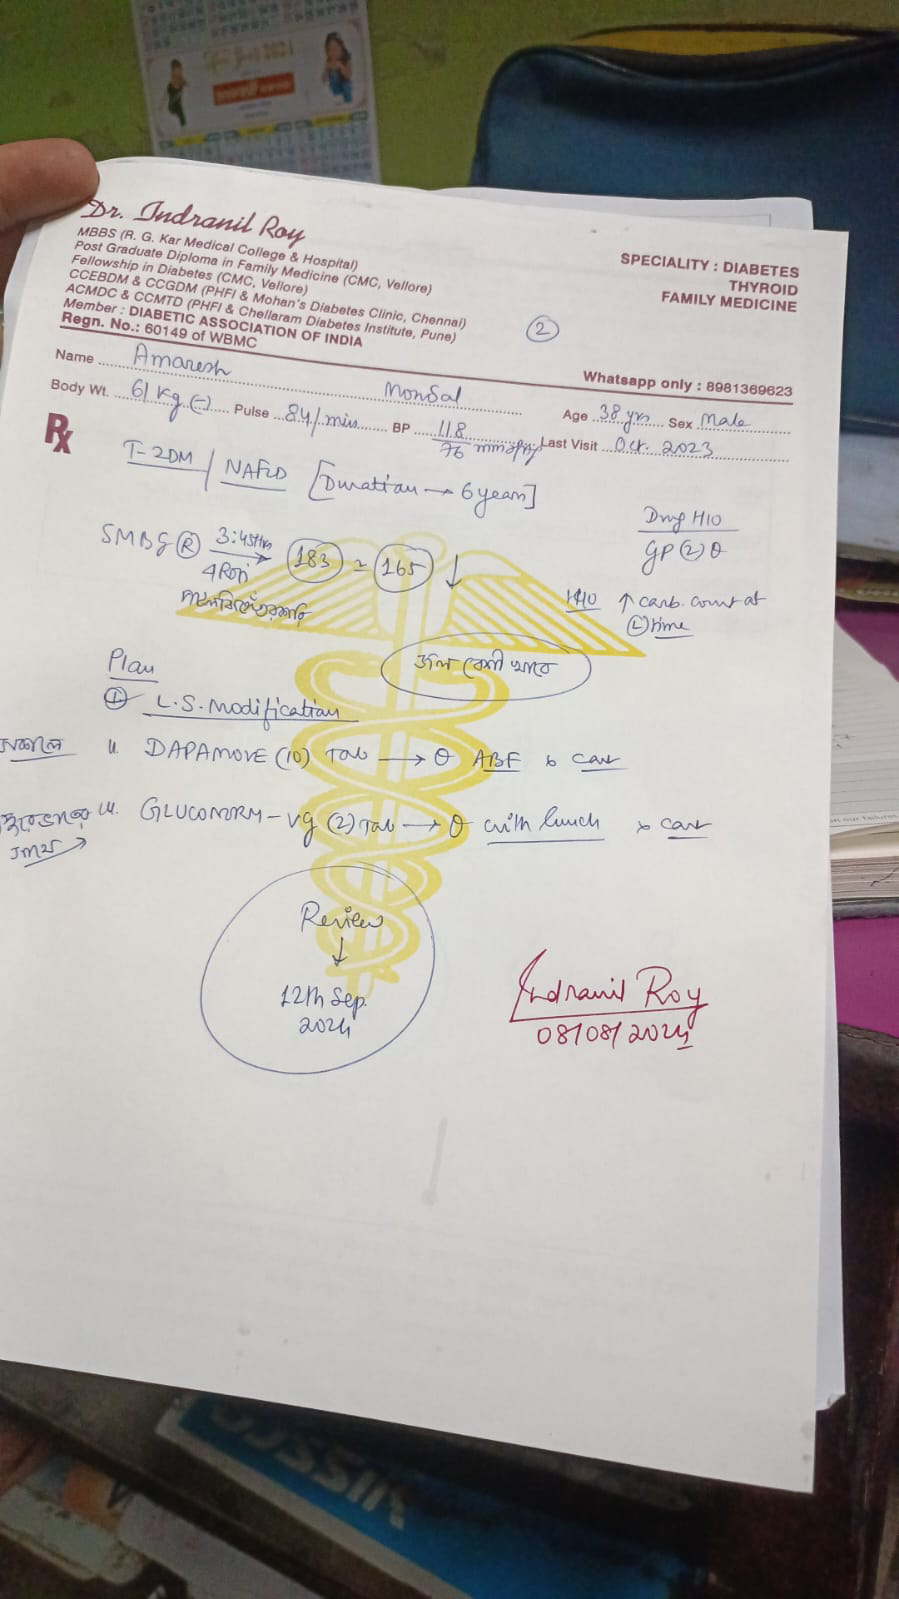 Dr. Indranil Roy
MBBS (R. G. Kar Medical College & Hospital)
Post Graduate Diploma in Family Medicine (CMC, Vellore)
Fellowship in Diabetes (CMC, Vellore)
CCEBDM & CCGDM (PHFI & Mohan's Diabetes Clinic, Chennai)
ACMDC & CCMTD (PHFI & Chellaram Diabetes Institute, Pune)
Member : DIABETIC ASSOCIATION OF INDIA
Regn. No.: 60149 of WBMC
SPECIALITY : DIABETES
THYROID
FAMILY MEDICINE
2
Whatsapp only : 8981369623
Name Amaresh Mondal Age 38 yrs Sex Male
Body Wt. 61 Kg (-) Pulse 84/min BP 118/76 mmHg Last Visit Oct. 2023
Rx
T-2DM / NAFLD [Duration → 6 years]
Drug H/O
GP (2)
SMBG (R) 3:45Hrs → 183 165 ↓
4 Roti
H/O ↑ carb. count at
(L) time
জল বেশী খাবে
Plan
L.S. Modification
সকালে ii. DAPAMOVE (10) Tab → ABF x cont
iii. GLUCONORM-VG (2) Tab → with lunch x cont
সময়
Review
↓
12th Sep.
2024
Indranil Roy
08/08/2024